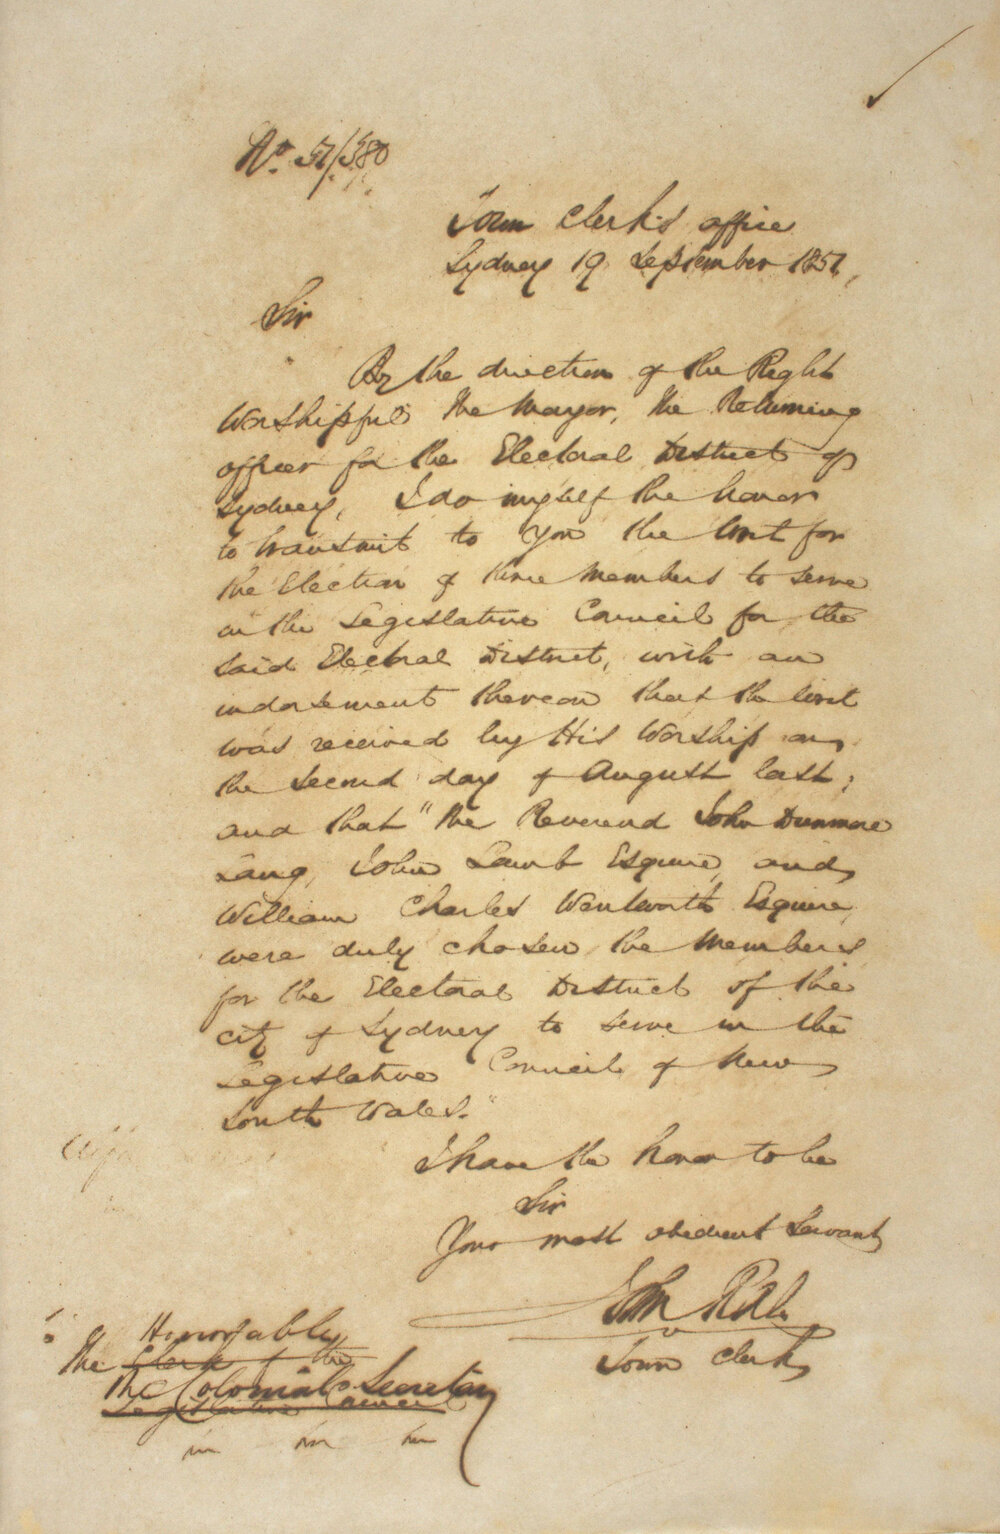 No. 51/380
Town Clerk's office
Sydney 19 September 1851,
Sir
By the direction of the Right
Worshipful the Mayor, the Returning
officer for the Electoral District of
Sydney, I do myself the honor
to transmit to you the writ for
the Election of three Members to serve
in the Legislative Council for the
said Electoral District, with an
indorsement thereon that the writ
was received by His Worship on
the second day of August last;
and that "the Reverend John Dunmore
Lang, John Lamb Esquire, and
William Charles Wentworth Esquire,
were duly chosen the Members
for the Electoral District of the
city of Sydney to serve in the
Legislative Council of New
South Wales."
I have the honor to be
Sir
Your most obedient Servant
John
Town Clerk
Honorable
The Clerk of the
The Colonial Secretary
Legislative Council